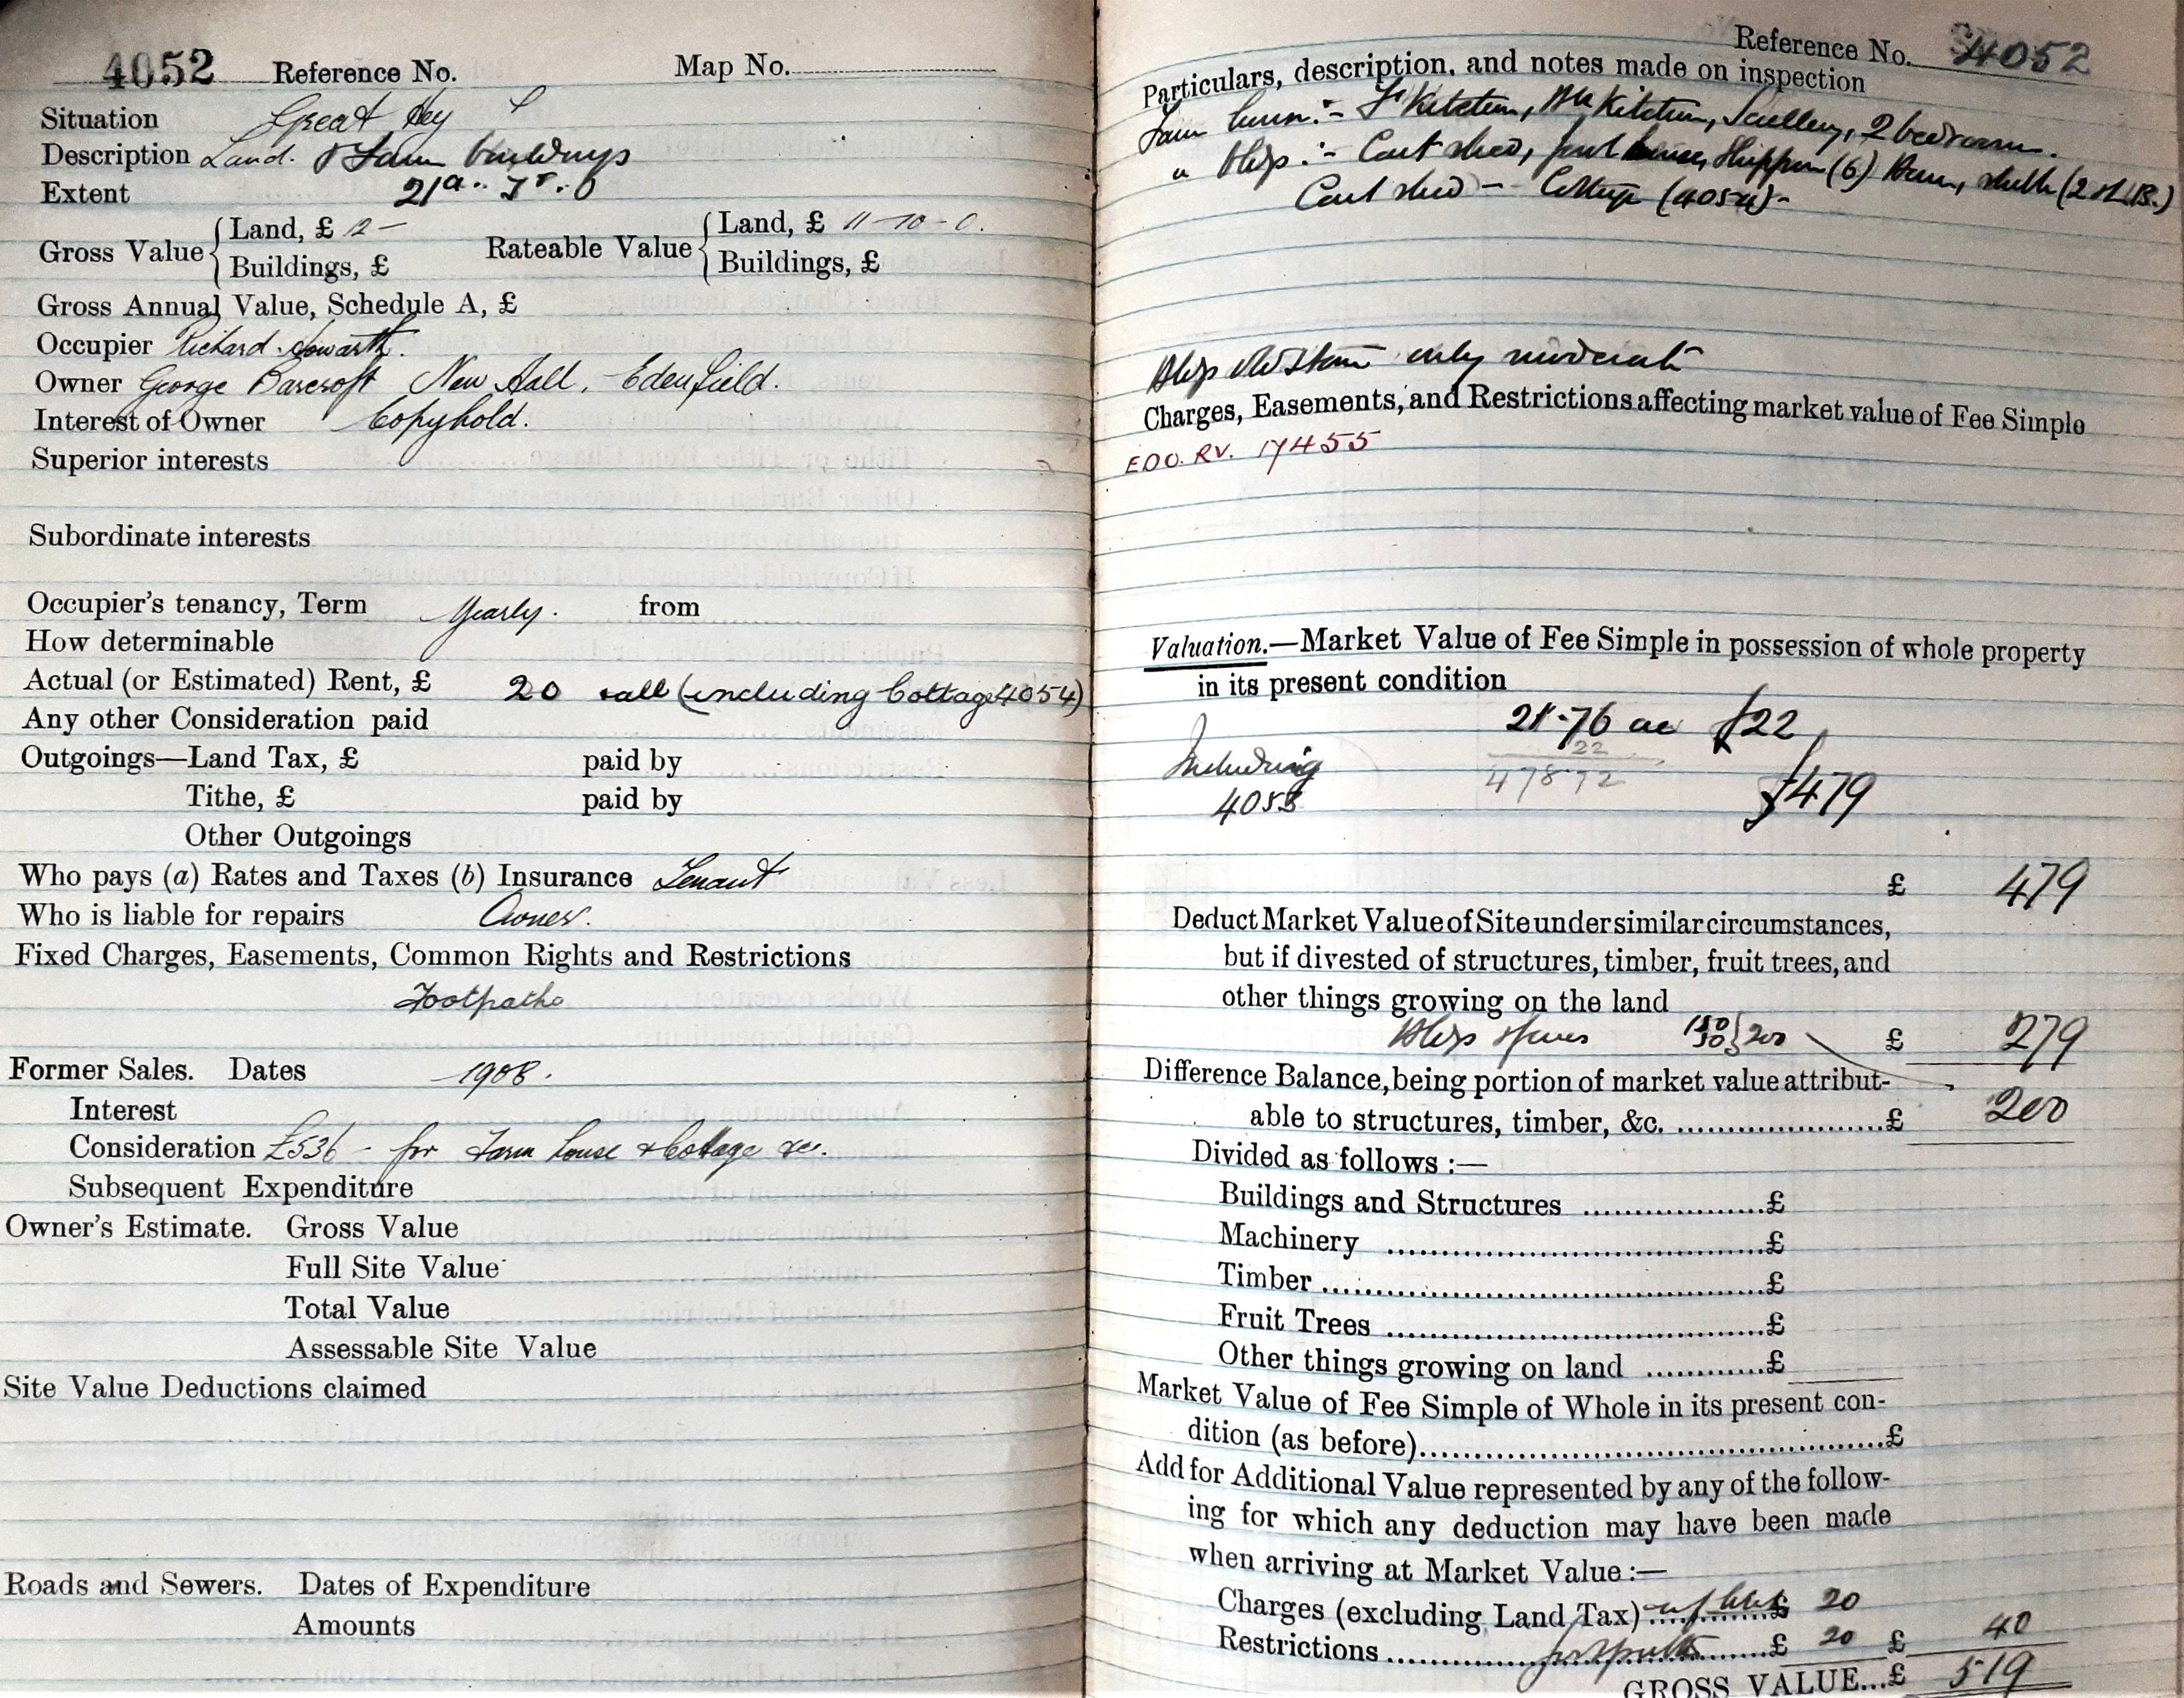 4052 Reference No. Map No.
Situation Great Hey
Description Land. & Farm buildings
Extent 21a.. 3r. 0
Gross Value { Land, £ 12 - Rateable Value { Land, £ 11-10-0.
Buildings, £ Buildings, £
Gross Annual Value, Schedule A, £
Occupier Richard Howarth.
Owner George Barcroft New Hall, Edenfield.
Interest of Owner Copyhold.
Superior interests
Subordinate interests
Occupier's tenancy, Term Yearly. from
How determinable
Actual (or Estimated) Rent, £ 20 all (including Cottage 4054)
Any other Consideration paid
Outgoings—Land Tax, £ paid by
Tithe, £ paid by
Other Outgoings
Who pays (a) Rates and Taxes (b) Insurance Tenant
Who is liable for repairs Owner.
Fixed Charges, Easements, Common Rights and Restrictions
Footpaths
Former Sales. Dates 1908.
Interest
Consideration £536 - for Farm house & Cottage &c.
Subsequent Expenditure
Owner's Estimate. Gross Value
Full Site Value
Total Value
Assessable Site Value
Site Value Deductions claimed
Roads and Sewers. Dates of Expenditure
Amounts
Reference No. 4052
Particulars, description, and notes made on inspection
Farm house :- Kitchen, Kitchen, Scullery, 2 bedrooms.
" Bldgs :- Cart shed, Shippon (6) Barn,
Cart shed - Cottage (4054)-
Bldgs old stone only moderate
Charges, Easements, and Restrictions affecting market value of Fee Simple
EDO. RV. 17455
Valuation.—Market Value of Fee Simple in possession of whole property
in its present condition
21.76 ac £22
22
Including 47872
4053 £479
£ 479
Deduct Market Value of Site under similar circumstances,
but if divested of structures, timber, fruit trees, and
other things growing on the land
Bldgs 150
50 } 200 £ 279
Difference Balance, being portion of market value attribut-
able to structures, timber, &c. £ 200
Divided as follows :—
Buildings and Structures £
Machinery £
Timber £
Fruit Trees £
Other things growing on land £
Market Value of Fee Simple of Whole in its present con-
dition (as before) £
Add for Additional Value represented by any of the follow-
ing for which any deduction may have been made
when arriving at Market Value :—
Charges (excluding Land Tax) £ 20
Restrictions footpaths £ 20 £ 40
GROSS VALUE...£ 519